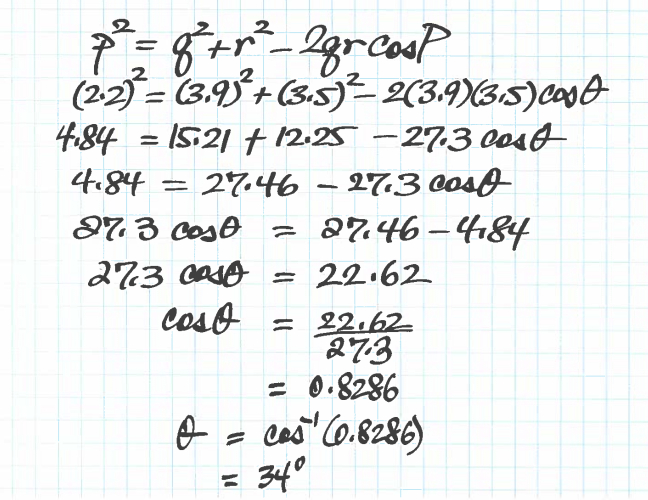 p² = q² + r² − 2qr cosP
(2.2)² = (3.9)² + (3.5)² − 2(3.9)(3.5) cosθ
4.84 = 15.21 + 12.25 − 27.3 cosθ
4.84 = 27.46 − 27.3 cosθ
27.3 cosθ = 27.46 − 4.84
27.3 cosθ = 22.62
cosθ = 22.62/27.3
= 0.8286
θ = cos⁻¹(0.8286)
= 34°